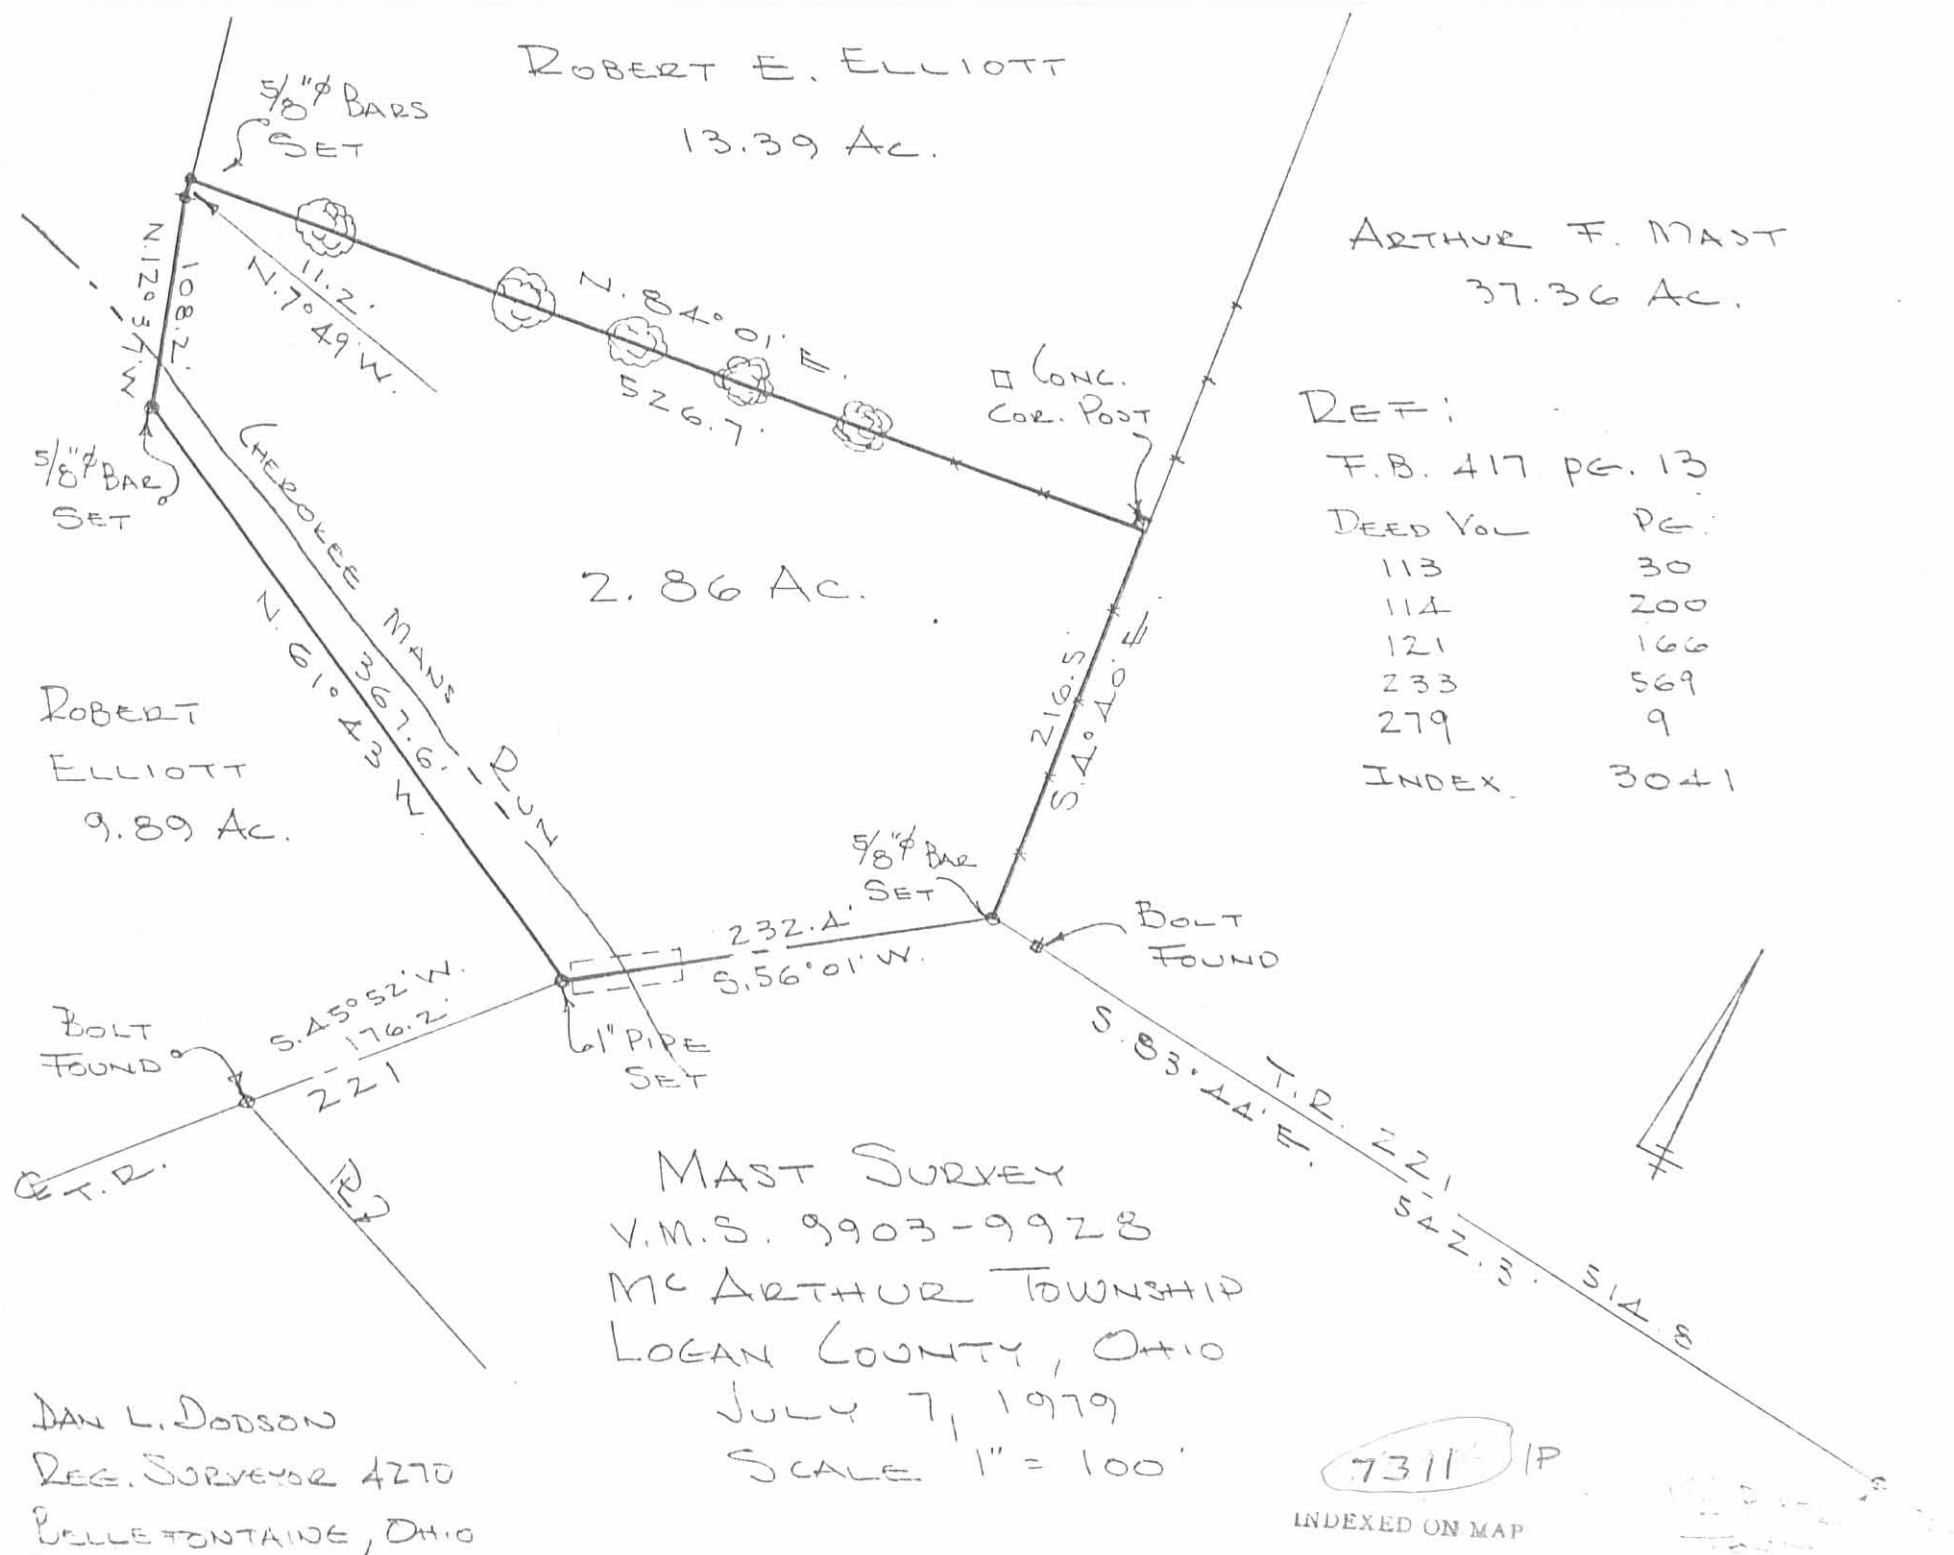 ROBERT E. ELLIOTT
13.39 AC.
5/8"⌀ BARS
SET
N. 12° 37' W.
108.2'
11.2'
N. 7° 49' W.
N. 84° 01' E.
526.7'
□ CONC.
COR. POST
ARTHUR F. MAST
37.36 AC.
REF:
F.B. 417 PG. 13
DEED VOL PG.
113 30
114 200
121 166
233 569
279 9
INDEX. 3041
5/8"⌀ BAR
SET
CHEROKEE MANS RUN
2.86 AC.
N. 61° 43' W.
367.6'
216.5'
S. 4° 40' E.
ROBERT
ELLIOTT
9.89 AC.
5/8"⌀ BAR
SET
232.4'
S. 56° 01' W.
BOLT
FOUND
S. 45° 52' W.
176.2'
221
BOLT
FOUND
1" PIPE
SET
℄ T.R.
RD
S. 83° 44' E.
T.R. 221
542.3'
514.8
MAST SURVEY
V.M.S. 9903-9928
MC ARTHUR TOWNSHIP
LOGAN COUNTY, OHIO
JULY 7, 1979
SCALE 1" = 100'
DAN L. DODSON
REG. SURVEYOR 4270
BELLEFONTAINE, OHIO
7311 1P
INDEXED ON MAP